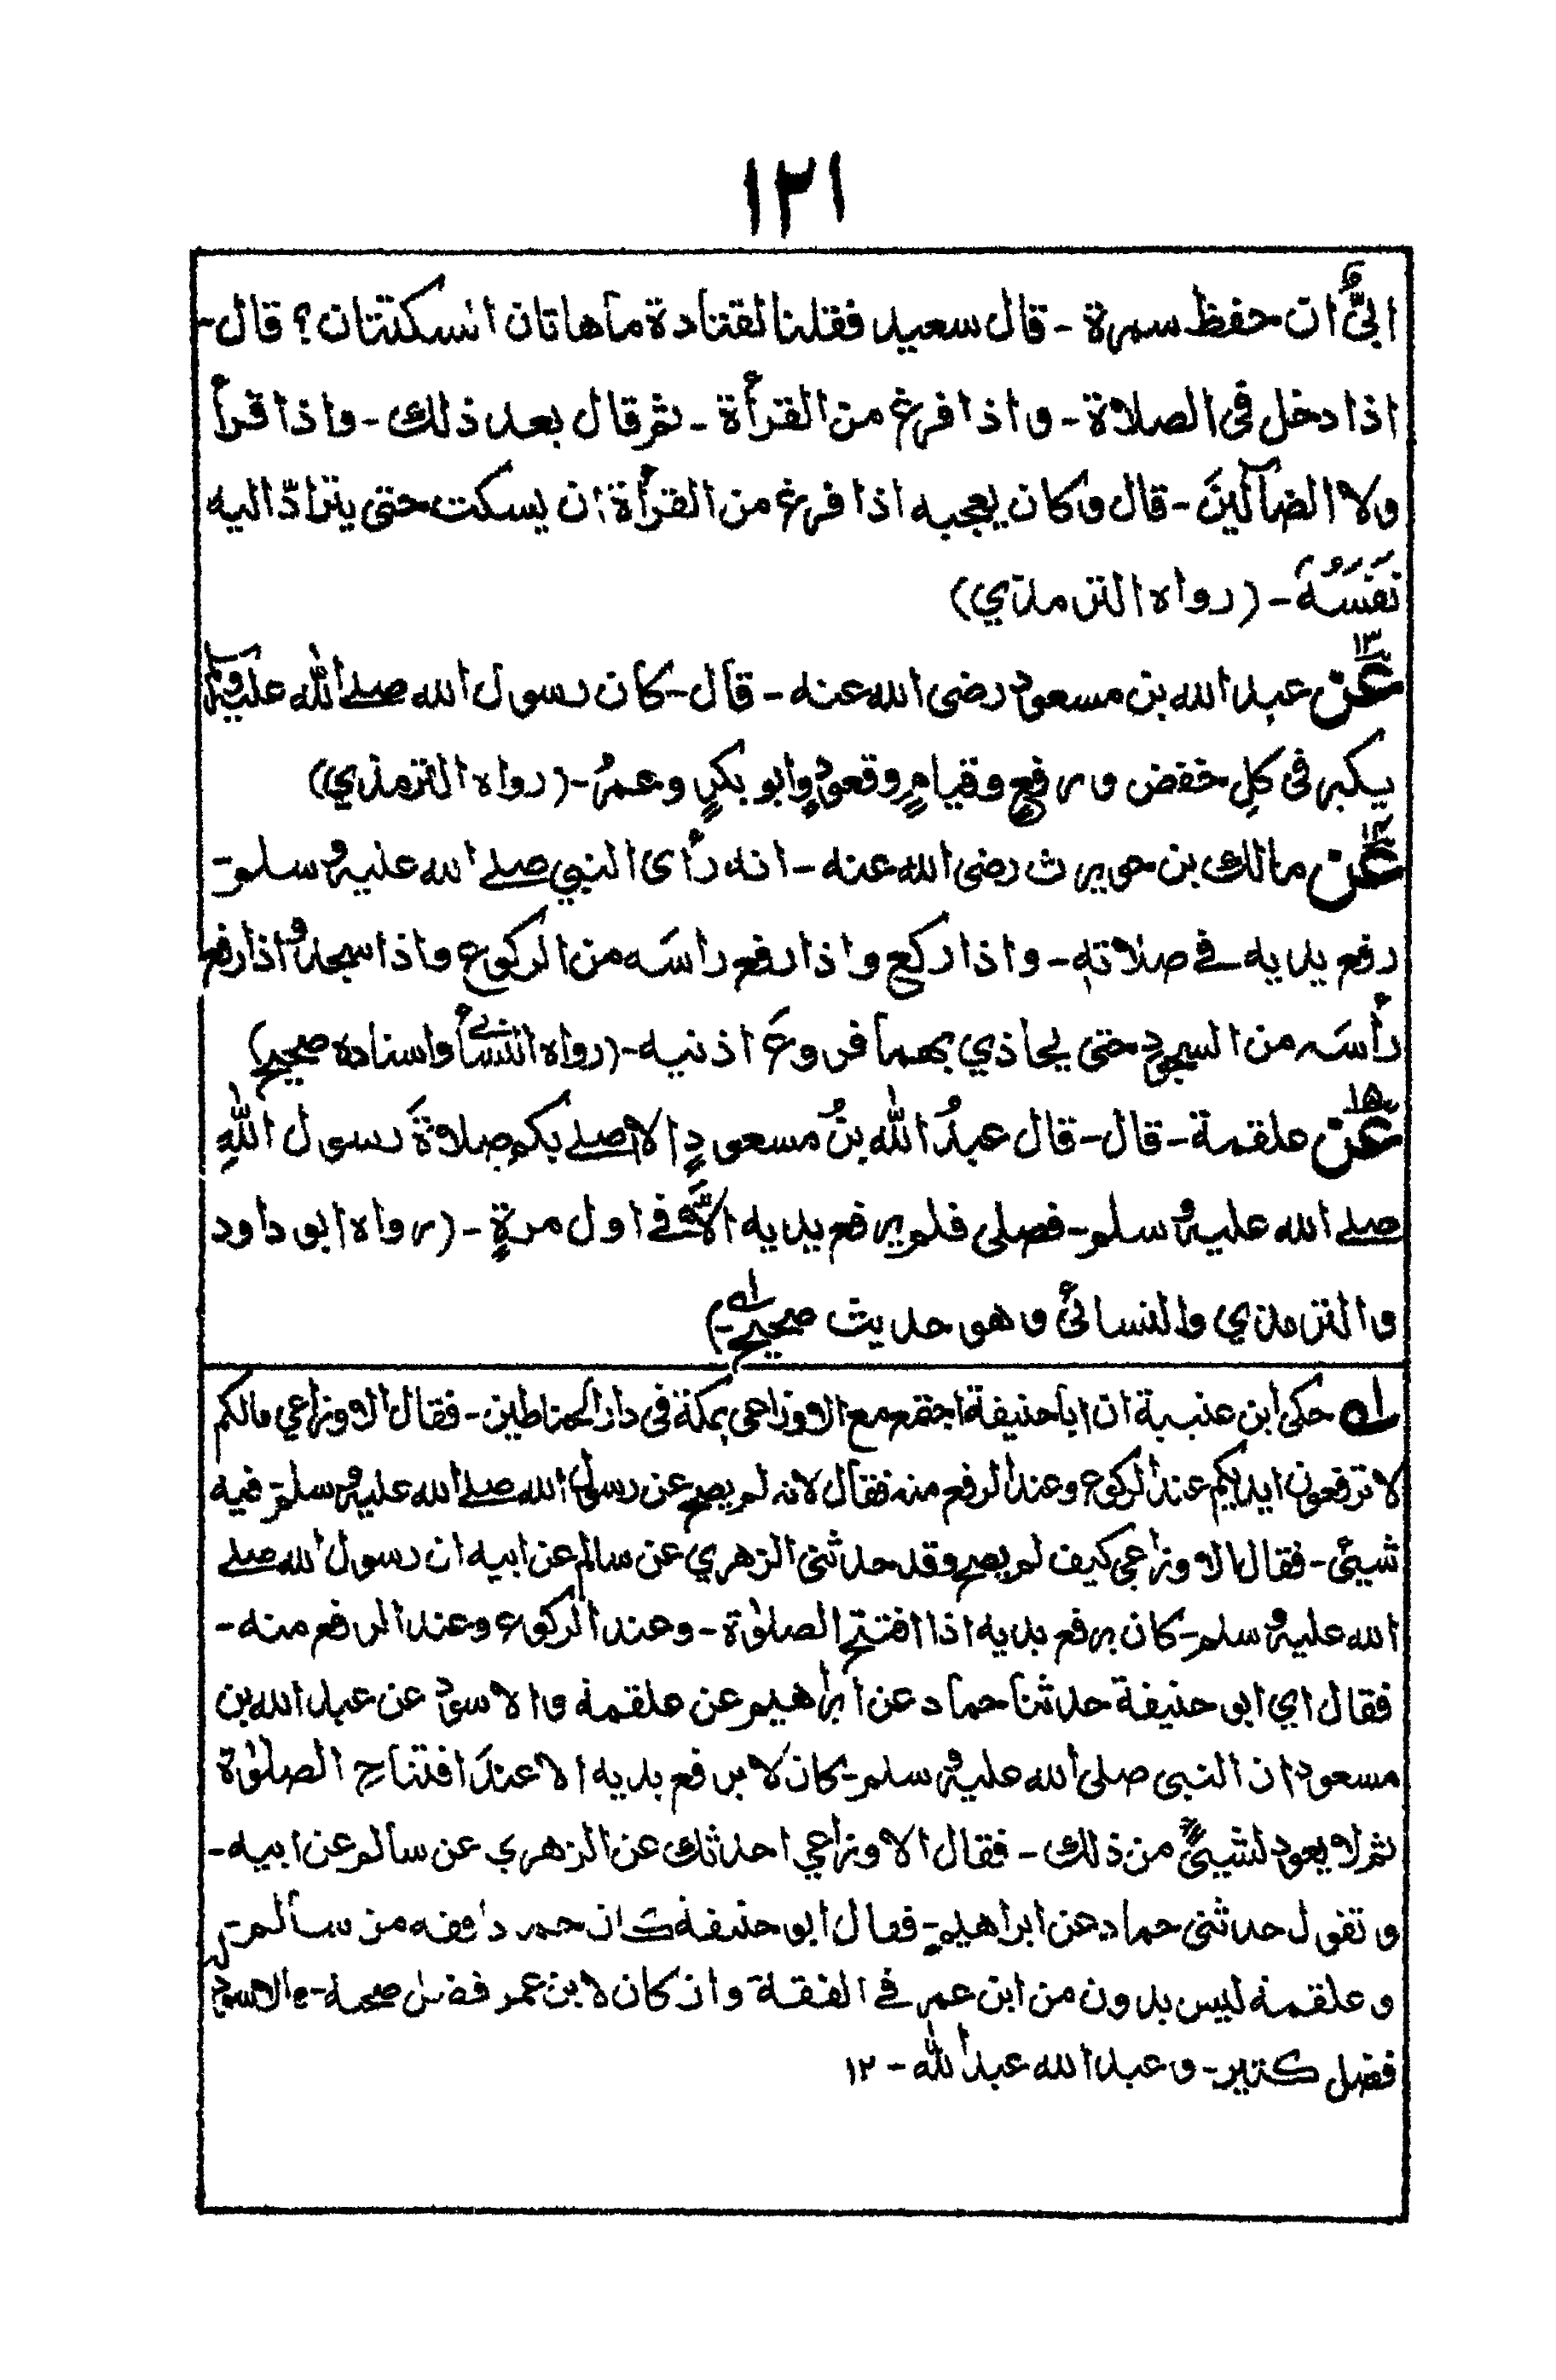 ١٢١
ابیٌّ ان حفظ سمرة - قال سعید فقلنا لقتادة ما هاتان السکتتان؟ قال-
اذا دخل فی الصلاة - و اذا فرغ من القرأة - ثم قال بعد ذلك - واذا قرأ
ولا الضآلین - قال وکان یعجبه اذا فرغ من القرأة ان یسکت حتی یترادّ الیه
نَفَسُهٗ - (رواه الترمذي)
١٣ عن عبد الله بن مسعود رضی الله عنه - قال - کان رسول الله صلے الله علیه وآله
یکبر فی کلِ خفض و رفعٍ و قیامٍ وقعودٍ وابو بکرٍ وعمرُ - (رواه الترمذي)
١٤ عن مالك بن حویرث رضی الله عنه - انه رأی النبي صلے الله علیه وسلم -
رفع یدیه فے صلاته - و اذا رکع و اذا رفع راسَه من الرکوع واذا سجد و اذا رفع
رأسَه من السجودِ حتی یحاذي بهما فروعَ اذنیه - (رواه النسائے واسناده صحیح)
١٥ عن علقمة - قال - قال عبدُ الله بنُ مسعودٍ الا اصلے بکم صلاةَ رسول اللهِ
صلے الله علیه وسلم - فصلی فلم یرفع یدیه الاَّ فے اول مرةٍ - (رواه ابو داود
و الترمذي والنسائیُ و هو حدیث صحیح) له
له حکی ابن عنبسة ان ابا حنیفة اجتمع مع الاوزاعی بمکة فی دار الحناطین - فقال الاوزاعي مالکم
لا ترفعون ایدیکم عند الرکوع وعند الرفع منه فقال لانه لم یصح عن رسول الله صلے الله علیه وسلم فیه
شیئ - فقال الاوزاعی کیف لم یصح وقد حدثنی الزهري عن سالم عن ابیه ان رسول الله صلے
الله علیه وسلم - کان یرفع یدیه اذا افتتح الصلوٰة - وعند الرکوع وعند الرفع منه -
فقال اي ابو حنیفة حدثنا حماد عن ابراهیم عن علقمة والاسود عن عبد الله بن
مسعود ان النبی صلی الله علیه وسلم - کان لا یرفع یدیه الا عند افتتاح الصلوٰة
ثم لا یعود لشیئٍ من ذلك - فقال الاوزاعي احدثك عن الزهري عن سالم عن ابیه -
و تقول حدثنی حماد عن ابراهیم - فقال ابو حنیفة کان حماد افقه من سالم -
و علقمة لیس بدون من ابن عمر فے الفقة و ان کان لابن عمر فضل صحبة - والاسود له
فضل کثیر - و عبد الله عبد الله - ١٢